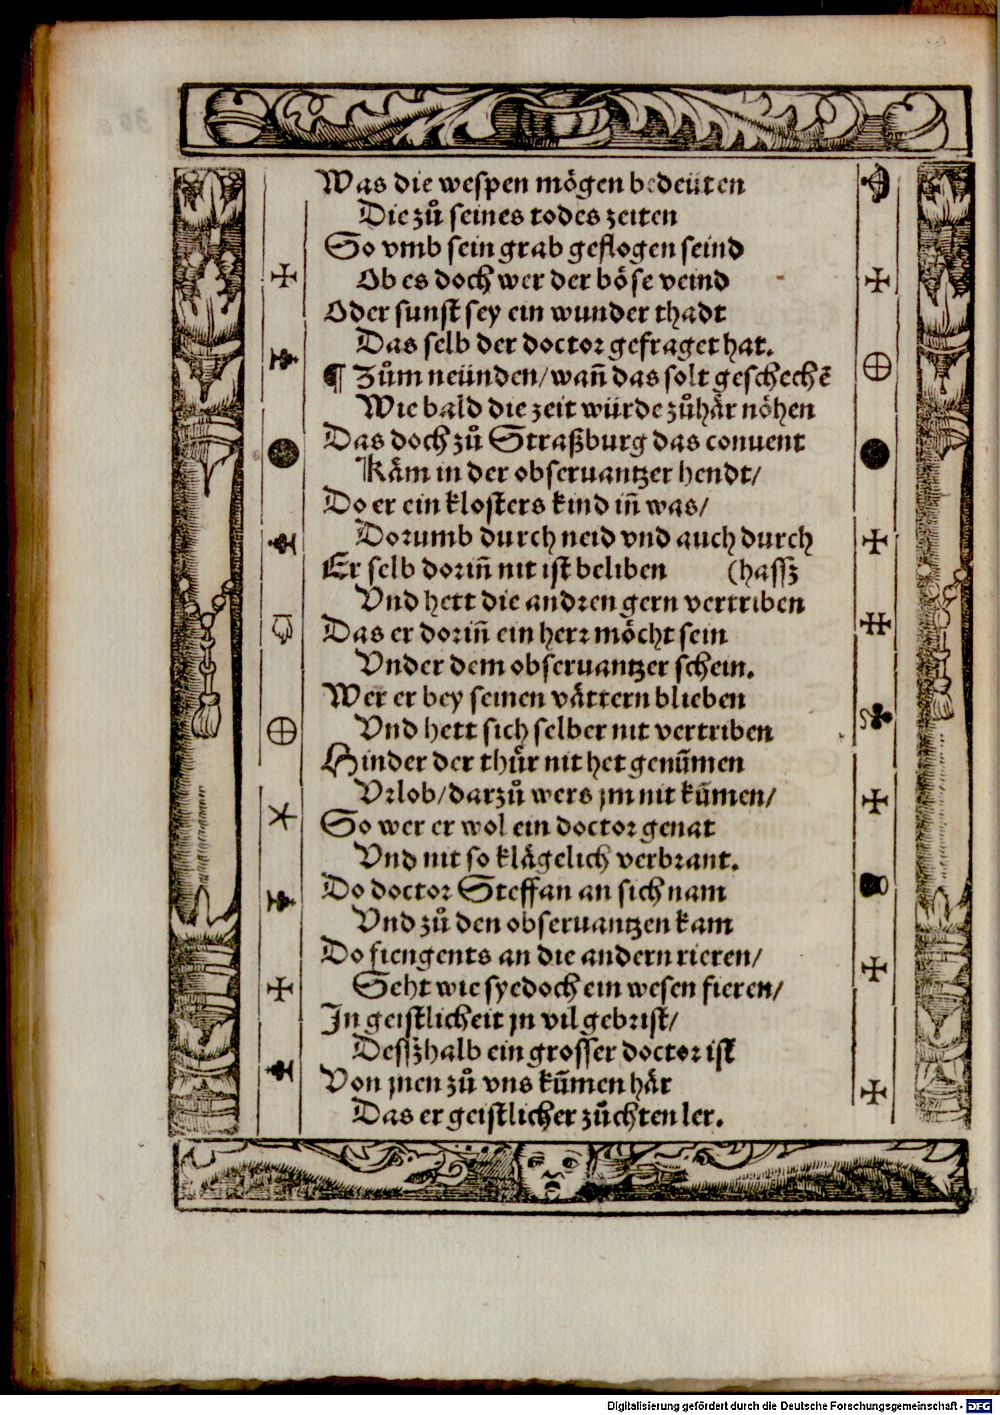 Was die wespen mögen bedeüten
Die zů seines todes zeiten
So vmb sein grab geflogen seind
Ob es doch wer der böse veind
Oder sunst sey ein wunder thadt
Das selb der doctor gefraget hat.
¶ Zům neünden/ wañ das solt geschechē
Wie bald die zeit würde zůhär nöhen
Das doch zů Straßburg das conuent
Käm in der obseruantzer hendt/
Do er ein klosters kind iñ was/
Dorumb durch neid vnd auch durch
Er selb doriñ nit ist beliben (hassz
Vnd hett die andren gern vertriben
Das er doriñ ein herr möcht sein
Vnder dem obseruantzer schein.
Wer er bey seinen vättern blieben
Vnd hett sich selber nit vertriben
Hinder der thür nit het genūmen
Vrlob/ darzů wers jm nit kūmen/
So wer er wol ein doctor genat
Vnd nit so klägelich verbrant.
Do doctor Steffan an sich nam
Vnd zů den obseruantzen kam
Do fiengents an die andern rieren/
Seht wie sye doch ein wesen fieren/
In geistlicheit jn vil gebrist/
Dessz halb ein grosser doctor ist
Von jnen zů vns kūmen här
Das er geistlicher züchten ler.
Digitalisierung gefördert durch die Deutsche Forschungsgemeinschaft - DFG